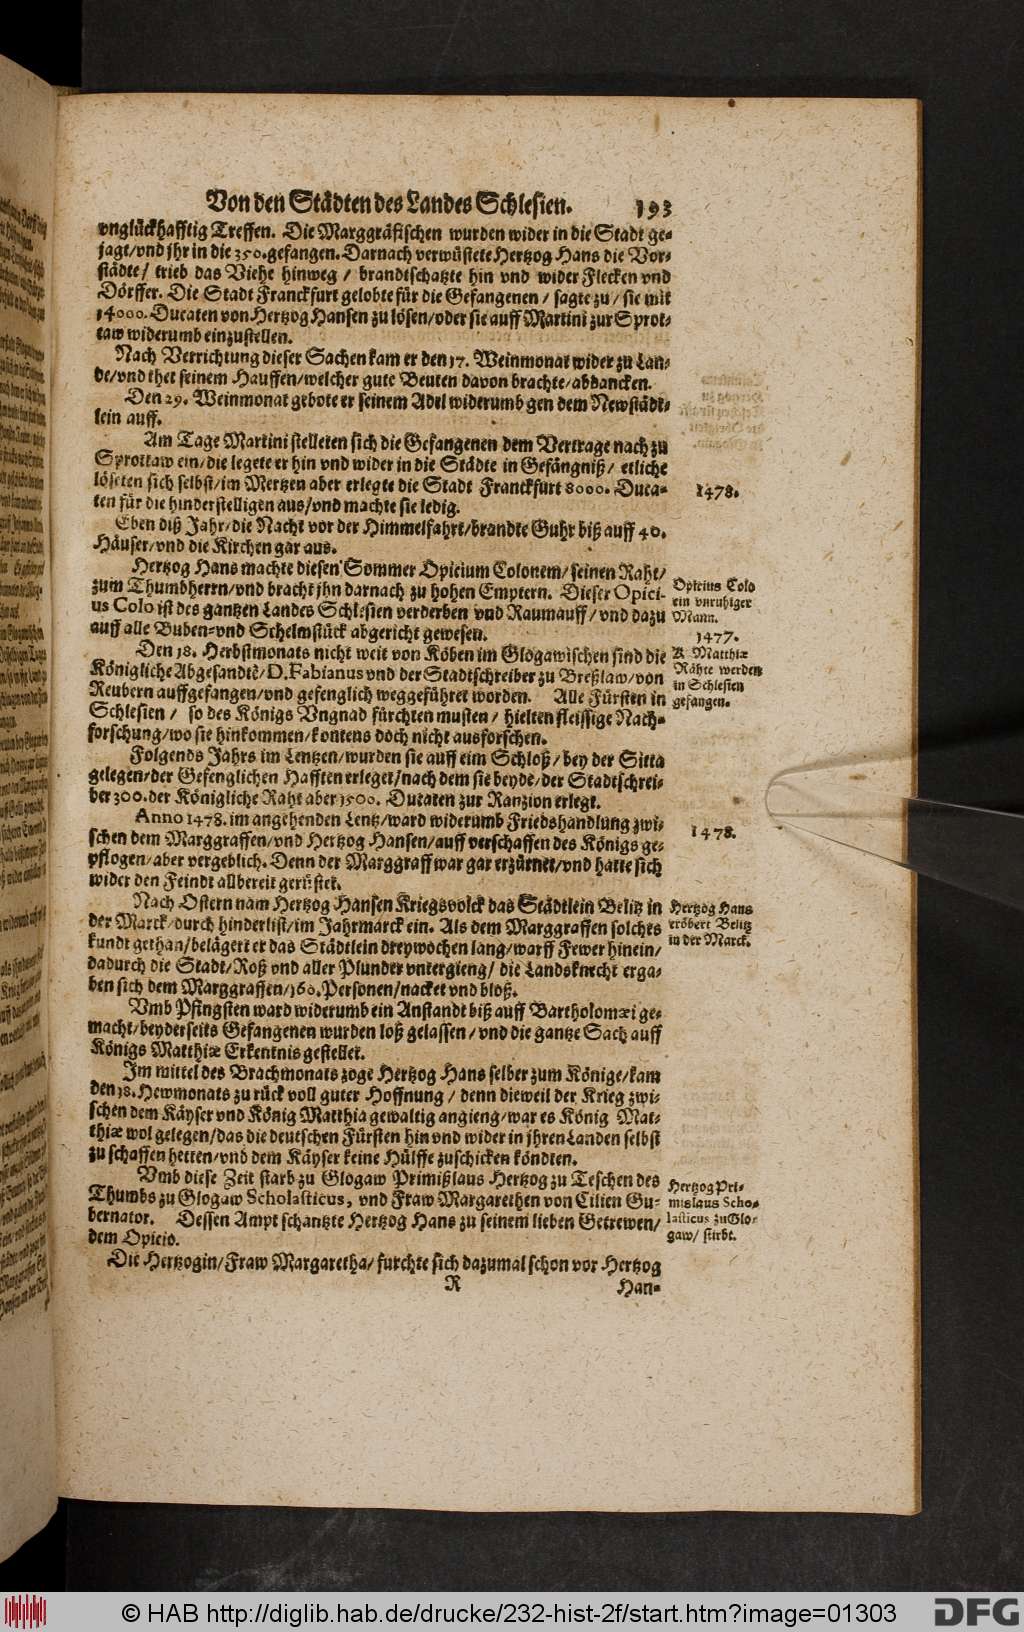 Von den Städten des Landes Schlesien. 193
vnglückhafftig Treffen. Die Marggräfischen wurden wider in die Stadt ge-
jagt/vnd jhr in die 350.gefangen. Darnach verwüstete Hertzog Hans die Vor-
städte/ trieb das Viehe hinweg/ brandtschatzte hin vnd wider Flecken vnd
Dörffer. Die Stadt Franckfurt gelobte für die Gefangenen/ sagte zu/ sie mit
14000. Ducaten von Hertzog Hansen zu lösen/oder sie auff Martini zur Sprot-
taw widerumb einzustellen.
Nach Verrichtung dieser Sachen kam er den 17. Weinmonat wider zu Lan-
de/vnd thet seinem Hauffen/welcher gute Beuten davon brachte/abdancken.
Den 29. Weinmonat gebote er seinem Adel widerumb gen dem Newstädt-
lein auff.
Am Tage Martini stelleten sich die Gefangenen dem Vertrage nach zu
Sprottaw ein/die legete er hin vnd wider in die Städte in Gefängniß/ etliche
löseten sich selbst/im Mertzen aber erlegte die Stadt Franckfurt 8000. Duca-
ten für die hinderstelligen aus/vnd machte sie ledig.
1478.
Eben diß Jahr/die Nacht vor der Himmelfahrt/brandte Guhr biß auff 40.
Häuser/vnd die Kirchen gar aus.
Hertzog Hans machte diesen Sommer Opicium Colonem/seinen Raht/
zum Thumbherrn/vnd bracht jhn darnach zu hohen Emptern. Dieser Opici-
us Colo ist des gantzen Landes Schlesien verderben vnd Raumauff/vnd dazu
auff alle Buben-vnd Schelmstück abgericht gewesen.
Opicius Colo
ein vnruhiger
Mann.
Den 18. Herbstmonats nicht weit von Köben im Glogawischen sind die
Königliche Abgesandtẽ/D. Fabianus vnd der Stadtschreiber zu Breßlaw/von
Reubern auffgefangen/vnd gefenglich weggeführet worden. Alle Fürsten in
Schlesien/ so des Königs Vngnad fürchten musten/ hielten fleissige Nach-
forschung/wo sie hinkommen/kontens doch nicht ausforschen.
1477.
K. Matthiæ
Rähte werden
in Schlesien
gefangen.
Folgends Jahrs im Lentzen/wurden sie auff eim Schloß/bey der Sitta
gelegen/der Gefenglichen Hafften erleget/nach dem sie beyde/der Stadtschrei-
ber 300.der Königliche Raht aber 1500. Ducaten zur Ranzion erlegt.
Anno 1478. im angehenden Lentz/ward widerumb Friedshandlung zwi-
schen dem Marggraffen/vnd Hertzog Hansen/auff verschaffen des Königs ge-
pflogen/aber vergeblich. Denn der Marggraff war gar erzürnet/vnd hatte sich
wider den Feindt allbereit gerüstet.
1478.
Nach Ostern nam Hertzog Hansen Kriegsvolck das Städtlein Belitz in
der Marck/durch hinderlist/im Jahrmarck ein. Als dem Marggraffen solches
kundt gethan/belägert er das Städtlein drey wochen lang/warff Fewer hinein/
dadurch die Stadt/Roß vnd aller Plunder vntergieng/ die Landsknecht erga-
ben sich dem Marggraffen/160.Personen/nacket vnd bloß.
Hertzog Hans
eröbert Belitz
in der Marck.
Vmb Pfingsten ward widerumb ein Anstandt biß auff Bartholomæi ge-
macht/beyderseits Gefangenen wurden loß gelassen/vnd die gantze Sach auff
Königs Matthiæ Erkentnis gestellet.
Im mittel des Brachmonats zoge Hertzog Hans selber zum Könige/kam
den 18. Hewmonats zu rück voll guter Hoffnung/ denn dieweil der Krieg zwi-
schen dem Käyser vnd König Matthia gewaltig angieng/war es König Mat-
thiæ wol gelegen/das die deutschen Fürsten hin vnd wider in jhren Landen selbst
zu schaffen hetten/vnd dem Käyser keine Hülffe zuschicken köndten.
Vmb diese Zeit starb zu Glogaw Primißlaus Hertzog zu Teschen des
Thumbs zu Glogaw Scholasticus, vnd Fraw Margarethen von Cilien Gu-
bernator. Dessen Ampt schantzte Hertzog Hans zu seinem lieben Getrewen/
dem Opicio.
Hertzog Pri-
mislaus Scho-
lasticus zu Glo-
gaw/ stirbt.
Die Hertzogin/Fraw Margaretha/furchte sich dazumal schon vor Hertzog
R Han-
© HAB http://diglib.hab.de/drucke/232-hist-2f/start.htm?image=01303
DFG